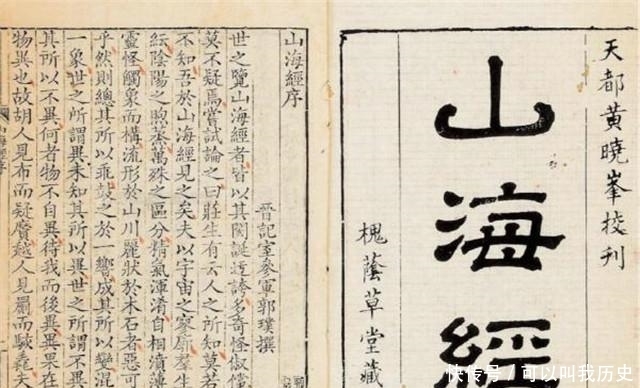 天都黃曉峯校刊
山海經
槐蔭草堂藏
山海經序
晉記室參軍郭璞撰
世之覽山海經者皆以其閎誕迂誇多奇怪俶儻
莫不疑焉嘗試論之曰莊生有云人之所知莫若
不知吾於山海經見之矣夫以宇宙之寥廓羣生
紜陰陽之煦蒸萬殊之區分精氣渾淆自相濆薄
靈怪觸象而構流形於山川麗狀於木石者惡可
乎然則總其所以乖鼓之於一響成其所以變混
一象世之所謂異未知其所以異世之所謂不異
其所以不異何者物不自異待我而後異異果在
物異也故胡人見布而疑黂越人見罽而駭毳
山海經序
快传号/可以叫我历史